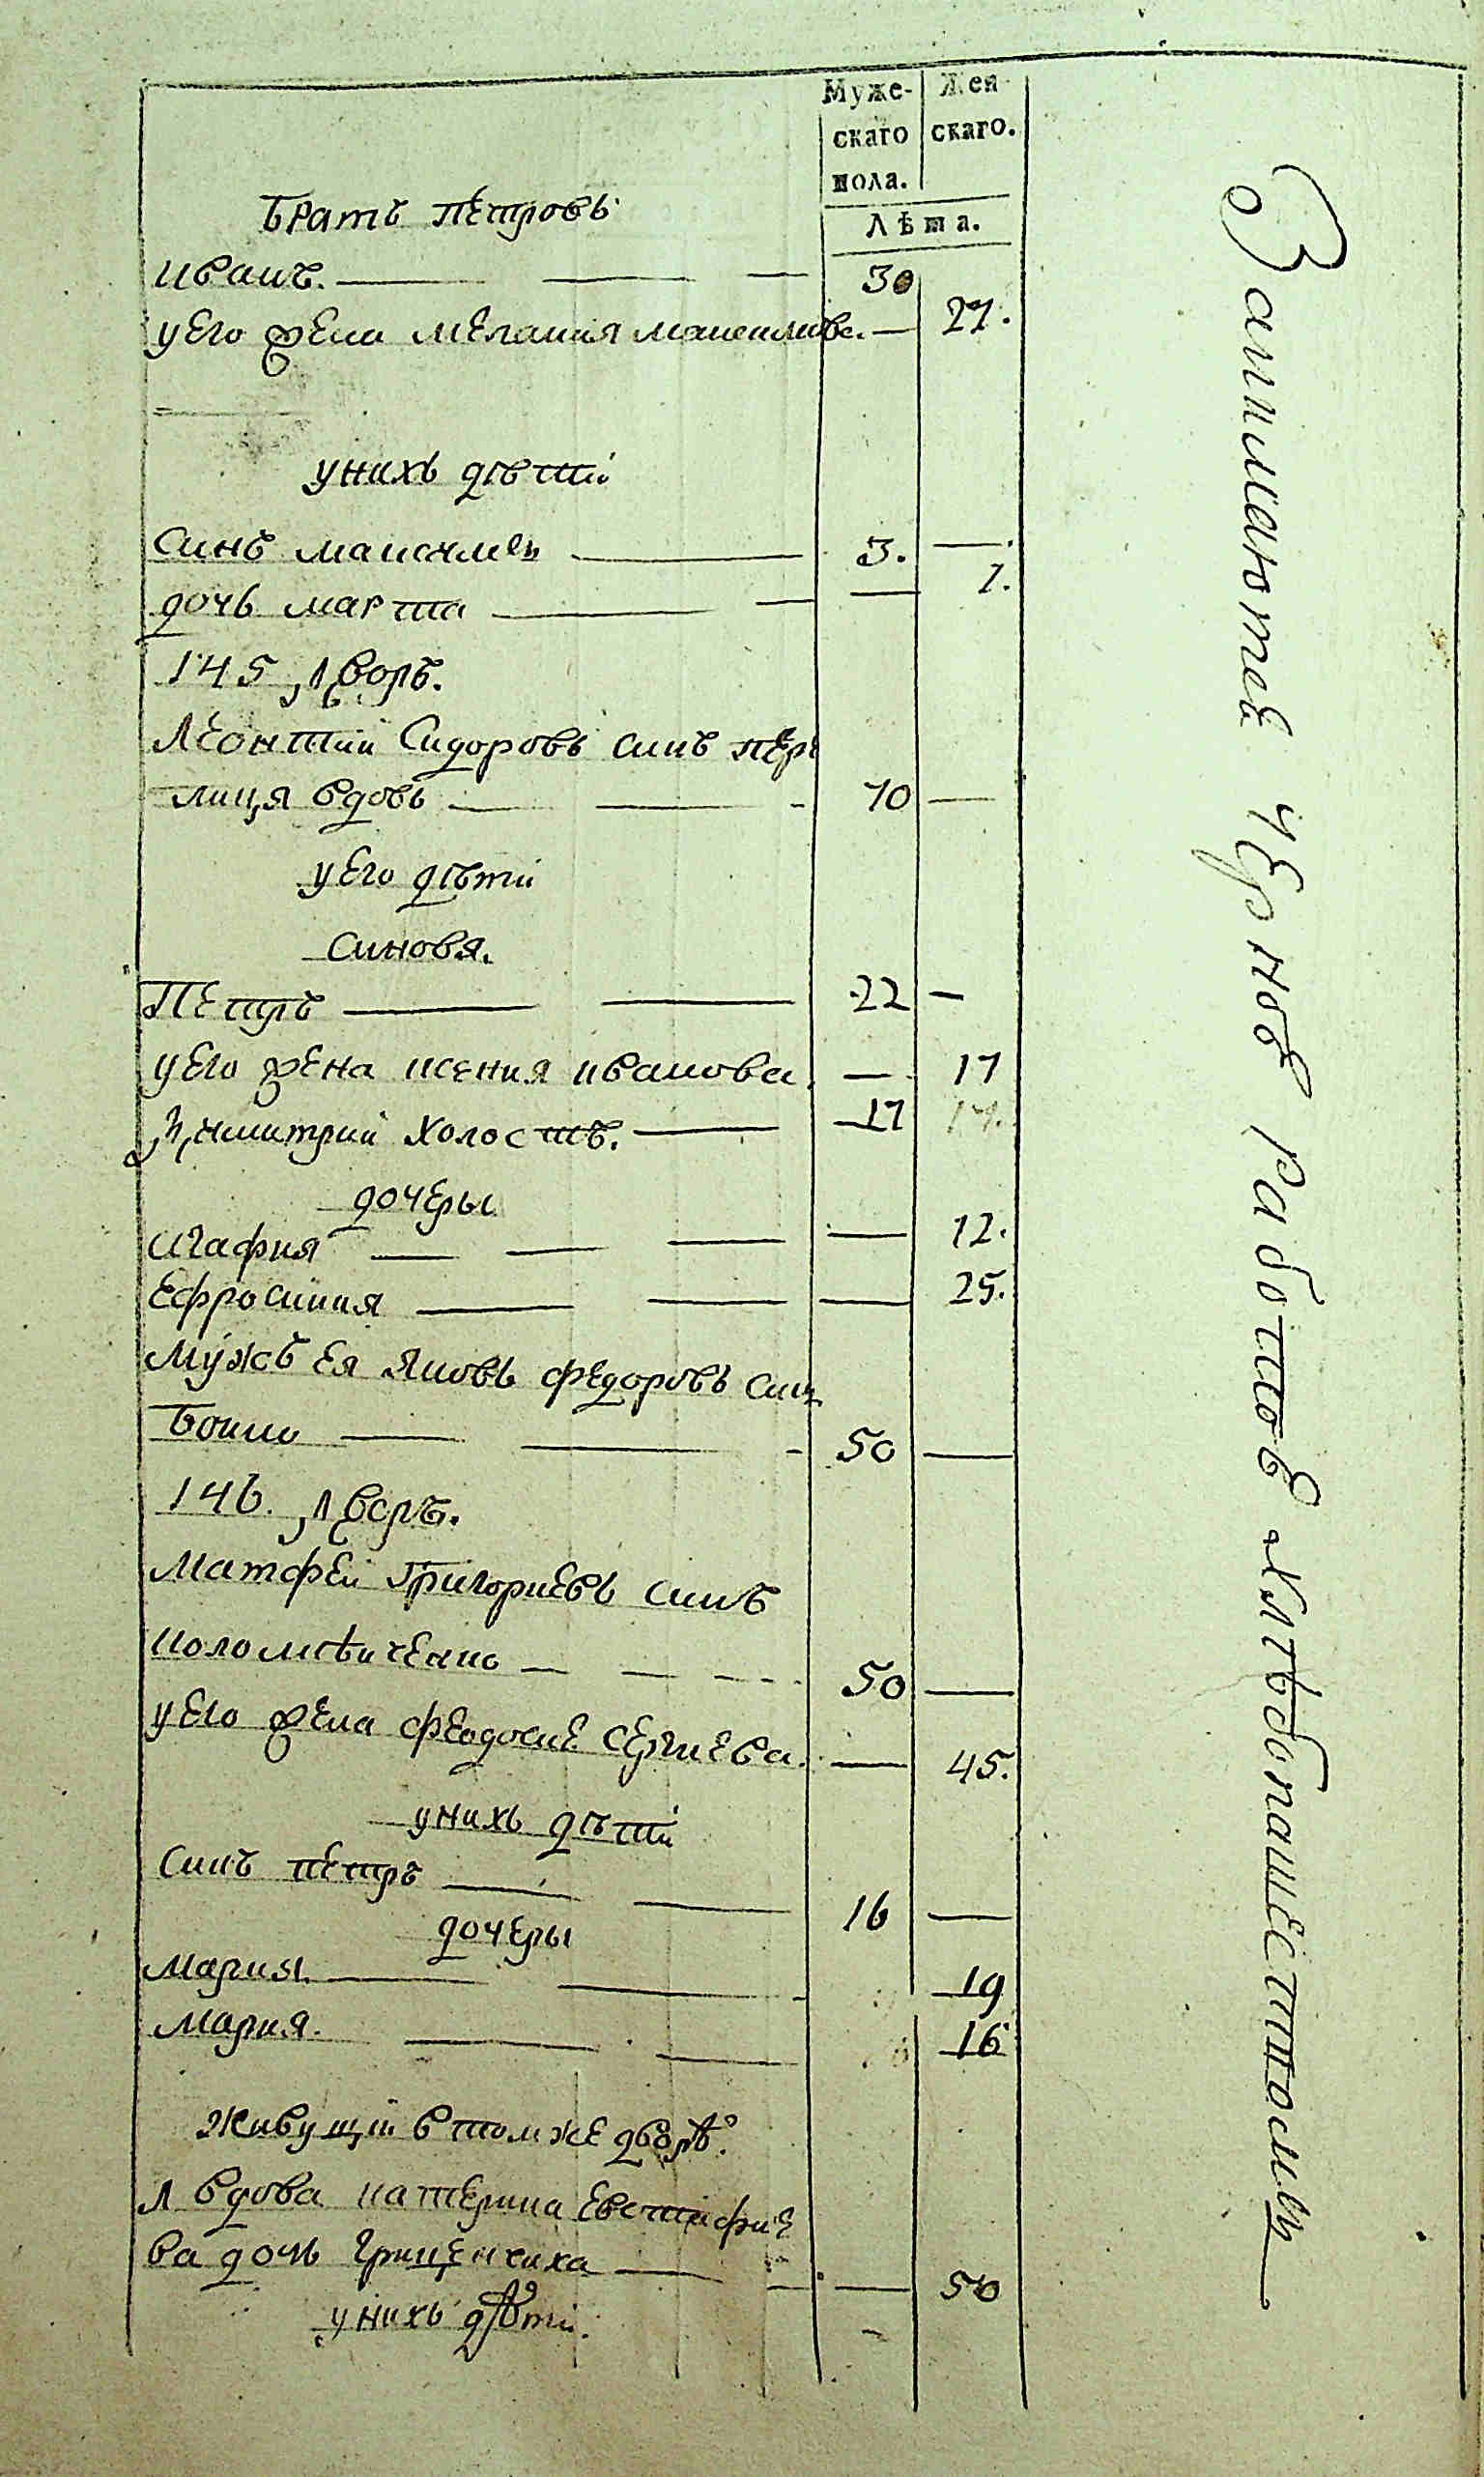 Муже-
скаго
пола.
Жен
скаго.
Лѣта.
братъ петровъ
иванъ. 30
уего жена мелания 27.
унихъ дѣти
синъ максимъ 3.
дочь марта 1.
145 дворъ.
леонтий Сидоровъ синъ пере
лиця вдовъ 70
уего дѣти
синовя.
петръ 22
уего жена ксения иванова 17
димитрий холостъ. 17
дочеры
агафия 12.
ефросиния 25.
мужъ ея яковъ федоровъ синъ
бойко 50
146. дворъ.
матфей григориевъ синъ
коломѣйченко 50
уего жена феодосие сергиева. 45.
унихъ дѣти
синъ петръ 16
дочеры
мария. 19
мария. 16
живущїи втомже дворѣ.
вдова катерина евстафие
ва дочь гриценкиха 50
унихъ дѣти.
Занимаются черною работою и хлѣбопашествомъ